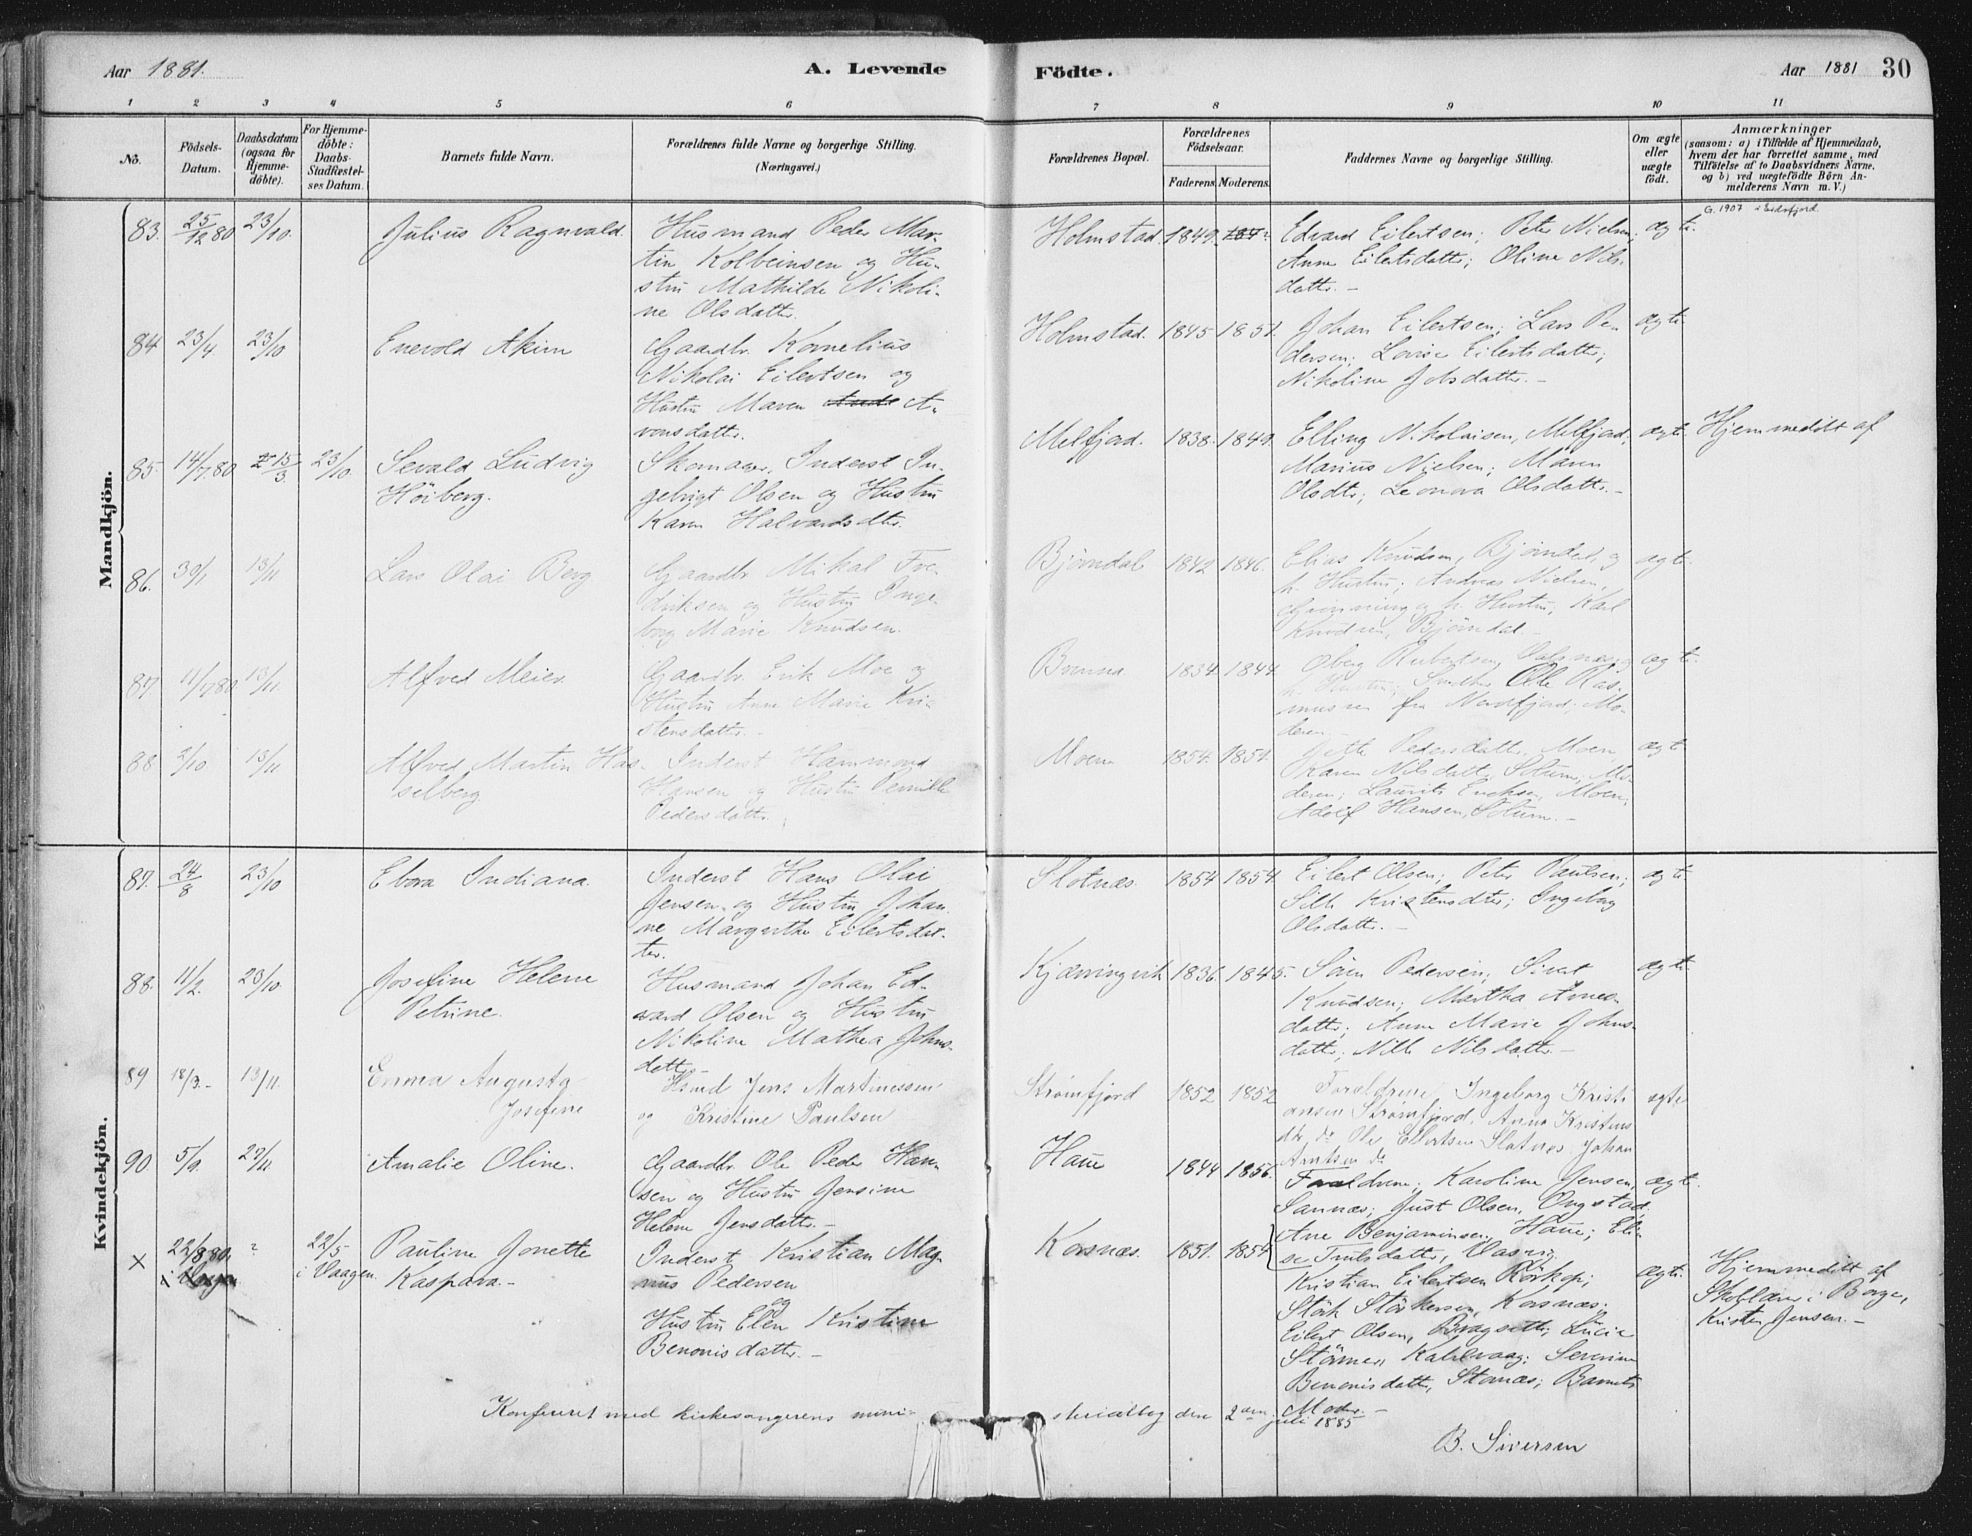 Aar 1881.
A. Levende
Födte.
Aar 1881
30
1 2 3 4 5 6 7 8 9 10 11
No.
Födsels-
Datum.
Daabsdatum
(ogsaa for
Hjemme-
döbte).
For Hjemme-
döbte:
Daabs-
Stadfæstel-
ses Datum.
Barnets fulde Navn.
Forældrenes fulde Navne og borgerlige Stilling.
(Næringsvei.)
Forældrenes Bopæl.
Forældrenes
Födselsaar.
Faderens. Moderens.
Faddernes Navne og borgerlige Stilling.
Om ægte
eller
uægte
födt.
Anmærkninger
(saasom: a) i Tilfælde af Hjemmedaab,
hvem der har forrettet samme, med
Tilföielse af to Daabsvidners Navne,
og b) ved uægtefödte Börn An-
melderens Navn m. V.)
Mandkjön.
83. 25/12 80 23/10.
Julius Ragnvald.
Husmand Peder Mar-
tin Kolbeinsen og Hu-
stru Mathilde Nikoli-
ne Olsdatter.
Holmstad. 1849.
Edvard Eilertsen; Peter Nielsen;
Anne Eilertsdatter; Oline Nils-
datter. -
ægte.
G. 1907 i Eidsfjord.
84 23/4 23/10
Enevold Akim
Gaardbr. Kornelius
Nikolai Eilertsen og
Hustru Maren A-
ronsdatter.
Holmstad. 1845 1851.
Johan Eilertsen; Lars Pe-
dersen; Lovise Eilertsdatter;
Nikoline Jobsdatter. -
ægte.
85. 14/7 80 15/3. 23/10.
Sevald Ludvig
Höiberg.
Skomager, Inderst In-
gebrigt Olsen og Hustru
Karen Halvardsdtr.
Melfjord. 1838. 1849.
Elling Nikolaisen, Melfjord;
Marius Nielsen; Maren
Olsdtr; Leonora Olsdatter. -
ægte.
Hjemmedöbt af
86. 30/1 13/11
Lars Olai Berg
Gaardbr. Mikal Fre-
driksen og Hustru Inge-
borg Marie Knudsen.
Bjørndal 1842 1846.
Elias Knudsen, Bjørndal, og
h. Hustru; Andreas Nielsen,
Grinning og h. Hustru; Karl
Knudsen, Bjørndal. -
ægte.
87 11/7 80. 13/11.
Alfred Meier.
Gaardbr. Erik Moe og
Hustru Anne Marie Kri-
stensdatter. -
Brenna 1834 1844
Oberg Rubertsen,
h. Hustru; Ole Ras-
mussen fra Nordfjord; Mo-
deren. -
ægte.
88 2/10 13/11
Alfred Martin Has-
selberg
Inderst Hammond
Hansen og Hustru Pernille
Pedersdatter.
Moen 1854. 1851.
Pedersdatter, Moen
Karen Nilsdatter, Sotum; Mo-
deren; Laurits Ericksen, Moen;
Adolf Hansen, Sotum. -
ægte
Kvindekjön.
87. 24/8 23/10
Ebora Indiana.
Inderst Hans Olai
Jensen og Hustru Johan-
ne Margrethe Eilertsdat-
ter.
Slotnæs. 1854 1854
Eilert Olsen; Peter Paulsen;
Kristensdtr; Ingeborg
Olsdatter. -
ægte.
88. 11/2. 23/10.
Josefine Helene
Petrine.
Husmand Johan Ed-
vard Olsen og Hustru
Nikoline Mathea Johns-
datter -
Kjærringvik 1836. 1845.
Sören Pedersen; Sivert
Knudsen; Martha Arnes-
datter; Anne Marie Johns-
datter; Nilsdatter. -
ægte.
89 18/3. 13/11.
Emma Augusta
Josefine
Hsmd Jens Martinessen
og Kristine Paulsen
Strömfjord 1852 1852
Forældrene, Ingeborg Kristi
ansen Strömfjord, Anna Kristens
dtr do Ole Eilertsen Slotnes Johan
Arntsen do
ægte
90 5/9. 27/11
Amalie Oline.
Gaardbr. Ole Peder Han-
sen og Hustru Jensine
Helene Jensdatter. -
Haue 1844 1856.
Forældrene; Karoline Jensen,
Sannæs; Just Olsen, Ongstad;
Ane Benjaminsen, Haue; Eli-
se Truls datter,
ægte.
× 22/8 80. ? 22/5
i Vaagen
Pauline Jonette
Kaspara. -
Inderst Kristian Mag-
nus Pedersen
og
Hustru Elen Kristine
Benonis datter. -
Korsnæs. 1851. 1854
Kristian Eilertsen Rörkop;
Störk Störkersen, Korsnæs;
Eilert Olsen, Lucie
Störmer, Kallevaag; Severine
Benonisdatter, Stornæs; Barnets
Moder. -
ægte.
Hjemmedöbt af
Skolelærer i Borge,
Kristen Jensen. -
Konfereret med kirkesangerens mini-
sterialbog den 2den juli 1885
B. Siversen